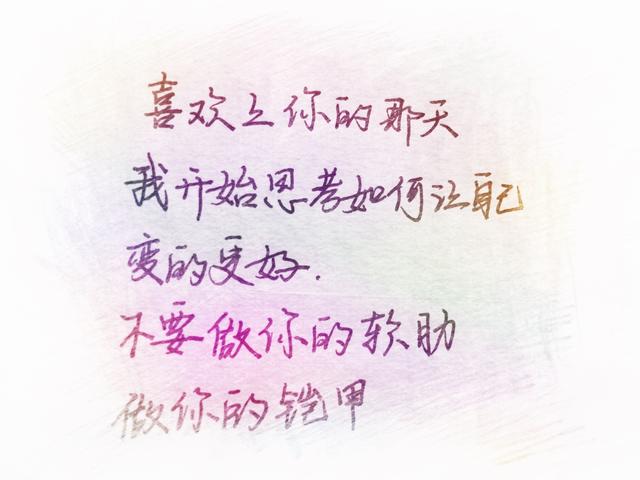 喜欢上你的那天
我开始思考如何让自己
变的更好.
不要做你的软肋
做你的铠甲